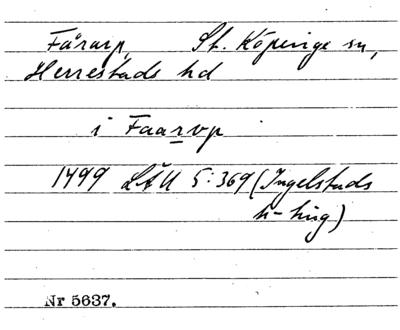 Fårarp, St. Köpinge sn,
Herrestads hd
i Faarvp
1499 LÄU 5:369 (Ingelstads
h-ting)
Nr 5637.